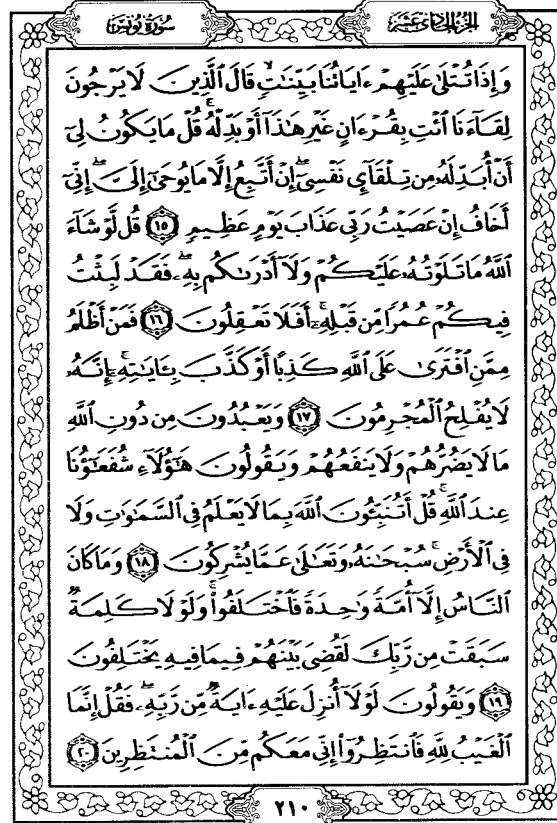 الجزء الحادي عشر
سورة يونس
وَإِذَا تُتۡلَىٰ عَلَيۡهِمۡ ءَايَاتُنَا بَيِّنَٰتٖ قَالَ ٱلَّذِينَ لَا يَرۡجُونَ
لِقَآءَنَا ٱئۡتِ بِقُرۡءَانٍ غَيۡرِ هَٰذَآ أَوۡ بَدِّلۡهُۚ قُلۡ مَا يَكُونُ لِيٓ
أَنۡ أُبَدِّلَهُۥ مِن تِلۡقَآيِٕ نَفۡسِيٓۖ إِنۡ أَتَّبِعُ إِلَّا مَا يُوحَىٰٓ إِلَيَّۖ إِنِّيٓ
أَخَافُ إِنۡ عَصَيۡتُ رَبِّي عَذَابَ يَوۡمٍ عَظِيمٖ ١٥ قُل لَّوۡ شَآءَ
ٱللَّهُ مَا تَلَوۡتُهُۥ عَلَيۡكُمۡ وَلَآ أَدۡرَىٰكُم بِهِۦۖ فَقَدۡ لَبِثۡتُ
فِيكُمۡ عُمُرٗا مِّن قَبۡلِهِۦٓۚ أَفَلَا تَعۡقِلُونَ ١٦ فَمَنۡ أَظۡلَمُ
مِمَّنِ ٱفۡتَرَىٰ عَلَى ٱللَّهِ كَذِبًا أَوۡ كَذَّبَ بِـَٔايَٰتِهِۦٓۚ إِنَّهُۥ
لَا يُفۡلِحُ ٱلۡمُجۡرِمُونَ ١٧ وَيَعۡبُدُونَ مِن دُونِ ٱللَّهِ
مَا لَا يَضُرُّهُمۡ وَلَا يَنفَعُهُمۡ وَيَقُولُونَ هَٰٓؤُلَآءِ شُفَعَٰٓؤُنَا
عِندَ ٱللَّهِۚ قُلۡ أَتُنَبِّـُٔونَ ٱللَّهَ بِمَا لَا يَعۡلَمُ فِي ٱلسَّمَٰوَٰتِ وَلَا
فِي ٱلۡأَرۡضِۚ سُبۡحَٰنَهُۥ وَتَعَٰلَىٰ عَمَّا يُشۡرِكُونَ ١٨ وَمَا كَانَ
ٱلنَّاسُ إِلَّآ أُمَّةٗ وَٰحِدَةٗ فَٱخۡتَلَفُواْۚ وَلَوۡلَا كَلِمَةٞ
سَبَقَتۡ مِن رَّبِّكَ لَقُضِيَ بَيۡنَهُمۡ فِيمَا فِيهِ يَخۡتَلِفُونَ
١٩ وَيَقُولُونَ لَوۡلَآ أُنزِلَ عَلَيۡهِ ءَايَةٞ مِّن رَّبِّهِۦۖ فَقُلۡ إِنَّمَا
ٱلۡغَيۡبُ لِلَّهِ فَٱنتَظِرُوٓاْ إِنِّي مَعَكُم مِّنَ ٱلۡمُنتَظِرِينَ ٢٠
٢١٠